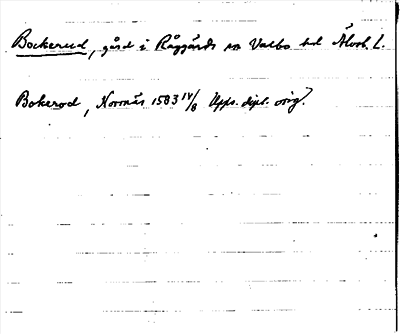 Bockerud, gård i Råggärds sn Valbo hd Älvsb. L.
Bokerod, Kornås 1583 14/8 Upps. dipl. orig.